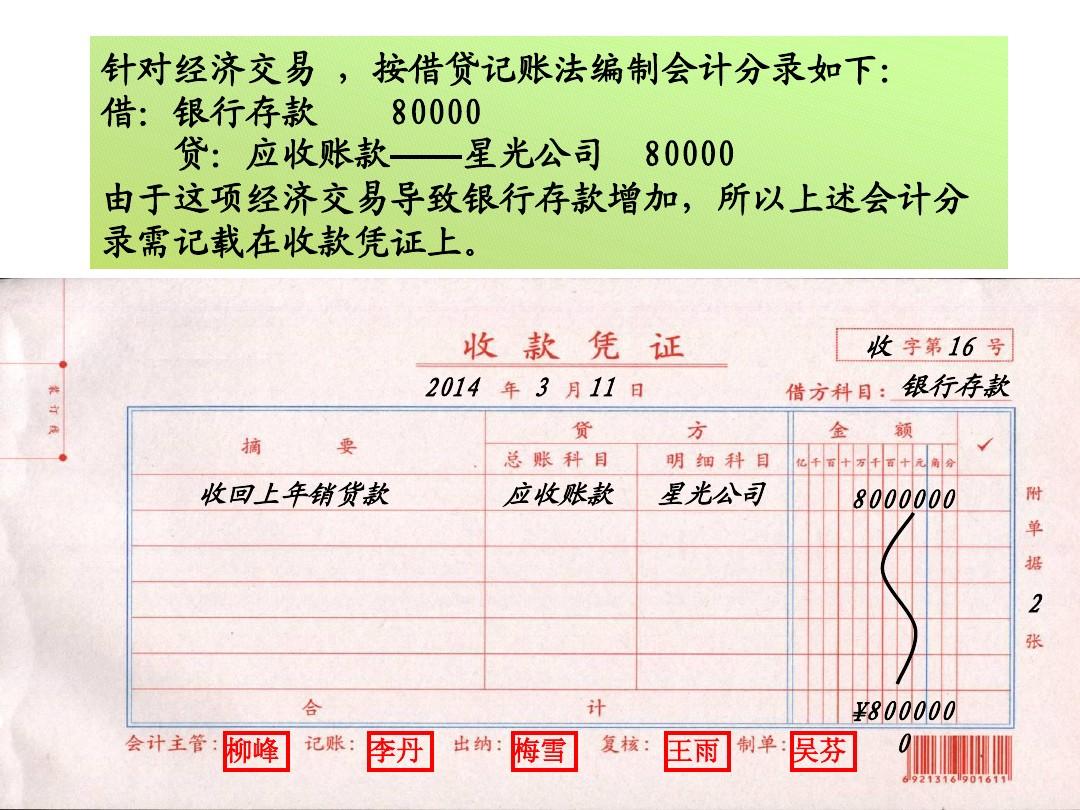 针对经济交易 ，按借贷记账法编制会计分录如下：
借：银行存款 80000
贷：应收账款——星光公司 80000
由于这项经济交易导致银行存款增加，所以上述会计分
录需记载在收款凭证上。
收款凭证
收 字第 16 号
2014 年 3 月 11 日
借方科目： 银行存款
装订线
摘要 贷方 金额 ✓
总账科目 明细科目 亿千百十万千百十元角分
收回上年销货款 应收账款 星光公司 8000000
附单据 2 张
合计 ¥800000
0
会计主管： 柳峰 记账： 李丹 出纳： 梅雪 复核： 王雨 制单： 吴芬
6921316901611